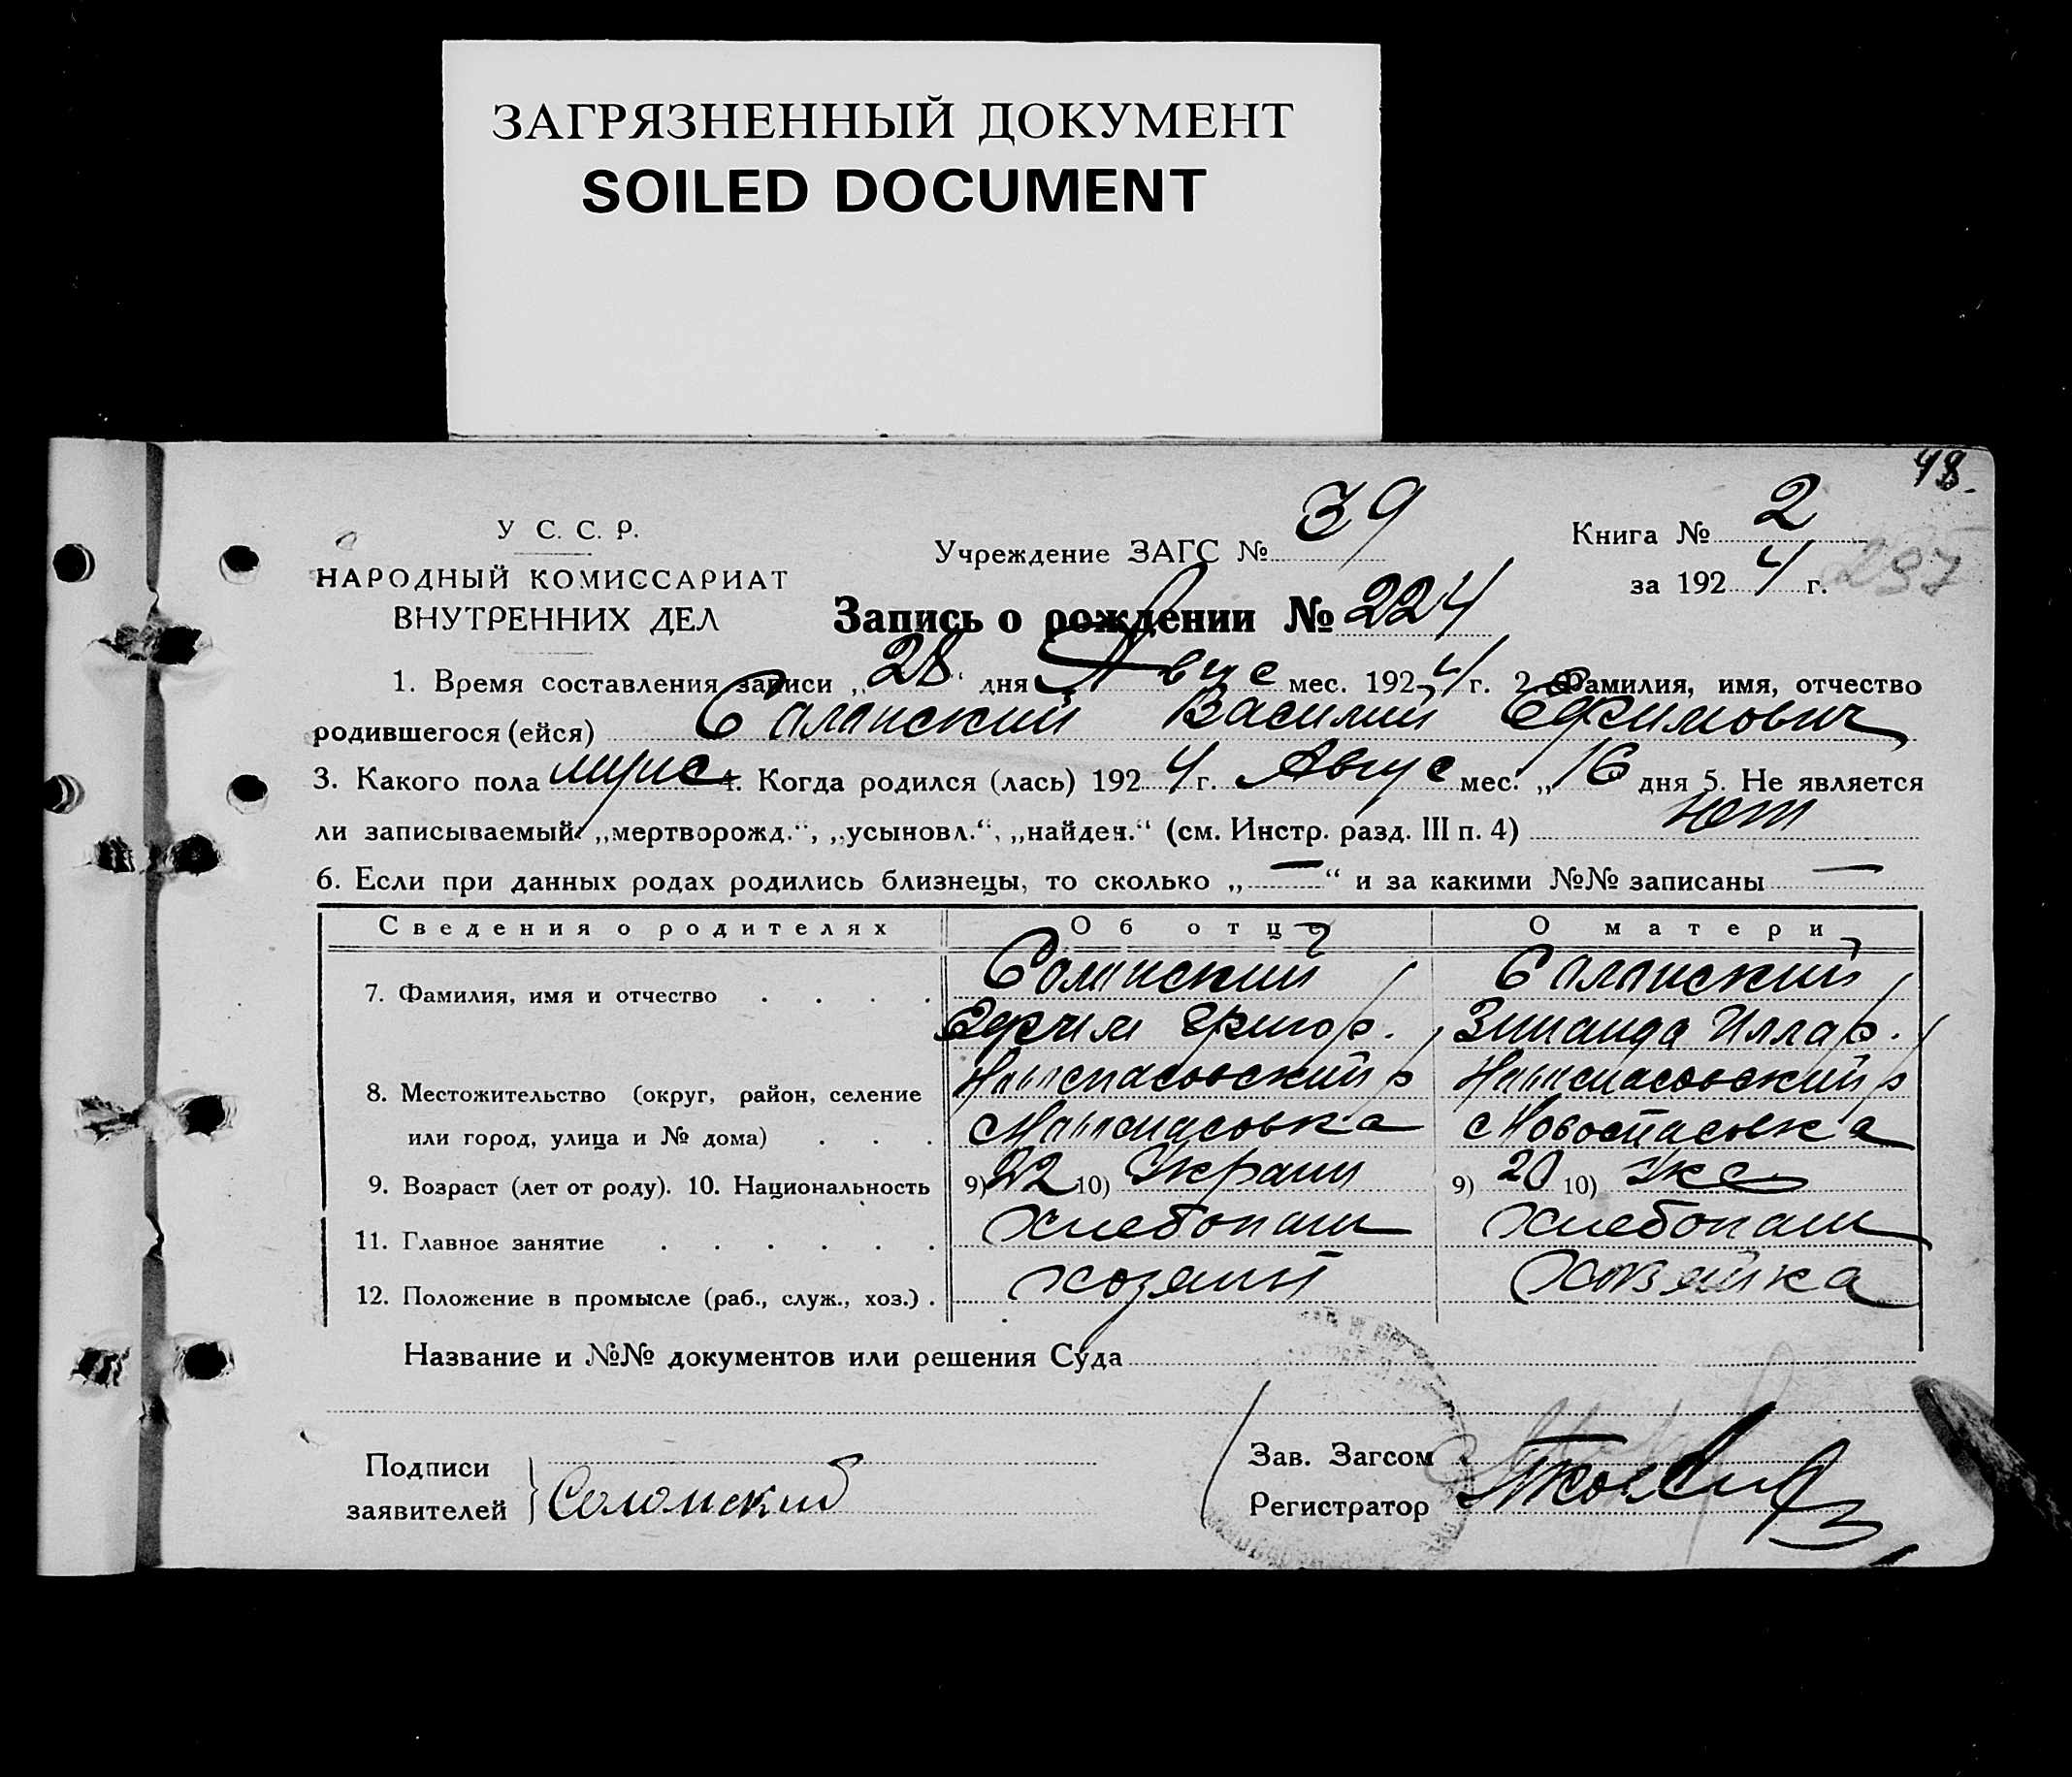 ЗАГРЯЗНЕННЫЙ ДОКУМЕНТ
SOILED DOCUMENT
48.
У С. С. Р.
НАРОДНЫЙ КОМИССАРИАТ
ВНУТРЕННИХ ДЕЛ
Учреждение ЗАГС № 39
Книга № 2
за 1924 г. 297
Запись о рождении № 224
1. Время составления записи „28“ дня Авгус мес. 1924 г. 2. Фамилия, имя, отчество
родившегося (ейся) Василий Ефимович
3. Какого пола муже 4. Когда родился (лась) 1924 г. Авгус мес. „16 дня 5. Не является
ли записываемый: „мертворожд.“, „усыновл.“, „найден.“ (см. Инстр. разд. III п. 4) нет
6. Если при данных родах родились близнецы, то сколько „—“ и за какими №№ записаны —
Сведения о родителях Об отце О матери
7. Фамилия, имя и отчество . . . .
Ефим Григор. Зинаида Иллар.
8. Местожительство (округ, район, селение Новоспасовский р Новоспасовский р
или город, улица и № дома) . . . с Новоспасовка с Новоспасовка
9. Возраст (лет от роду). 10. Национальность 9) 22 10) Украин 9) 20 10)
11. Главное занятие . . . . . . хлебопаш хлебопаш
12. Положение в промысле (раб., служ., хоз.) . хозяин хозяйка
Название и №№ документов или решения Суда
Подписи
заявителей
Зав. Загсом
Регистратор